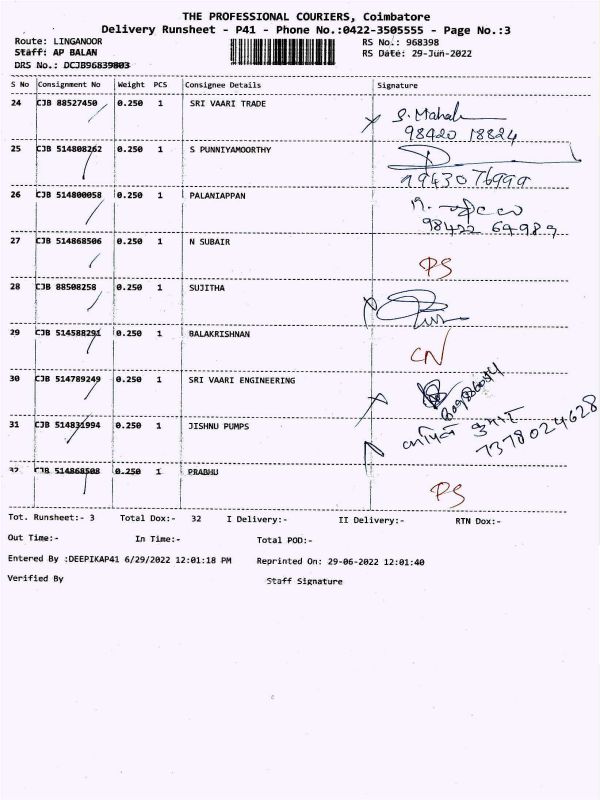 THE PROFESSIONAL COURIERS, Coimbatore
Delivery Runsheet - P41 - Phone No.:0422-3505555 - Page No.:3
Route: LINGANOOR RS No.: 968398
Staff: AP BALAN RS Date: 29-Jun-2022
DRS No.: DCJB96839803
S No Consignment No Weight PCS Consignee Details Signature
24 CJB 88527450 0.250 1 SRI VAARI TRADE S. Mahal
98420 18824
25 CJB 514808262 0.250 1 S PUNNIYAMOORTHY
9943076999
26 CJB 514800058 0.250 1 PALANIAPPAN
98422 64989
27 CJB 514868506 0.250 1 N SUBAIR PS
28 CJB 88508258 0.250 1 SUJITHA
29 CJB 514588291 0.250 1 BALAKRISHNAN CN
30 CJB 514789249 0.250 1 SRI VAARI ENGINEERING
31 CJB 514831994 0.250 1 JISHNU PUMPS 7378024628
32 CJB 514868508 0.250 1 PRABHU PS
Tot. Runsheet:- 3 Total Dox:- 32 I Delivery:- II Delivery:- RTN Dox:-
Out Time:- In Time:- Total POD:-
Entered By :DEEPIKAP41 6/29/2022 12:01:18 PM Reprinted On: 29-06-2022 12:01:40
Verified By Staff Signature